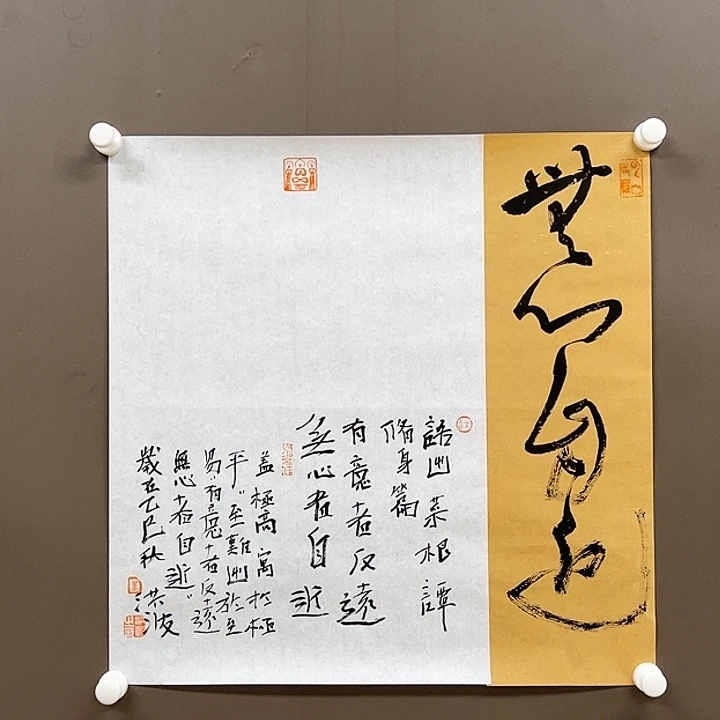 無心自近
語出菜根譚
脩身篇
有意者反遠
無心者自近
盖極高寓於極
平，至難出於至
易，有意者反遠
無心者自近
歲在乙巳秋
洪波